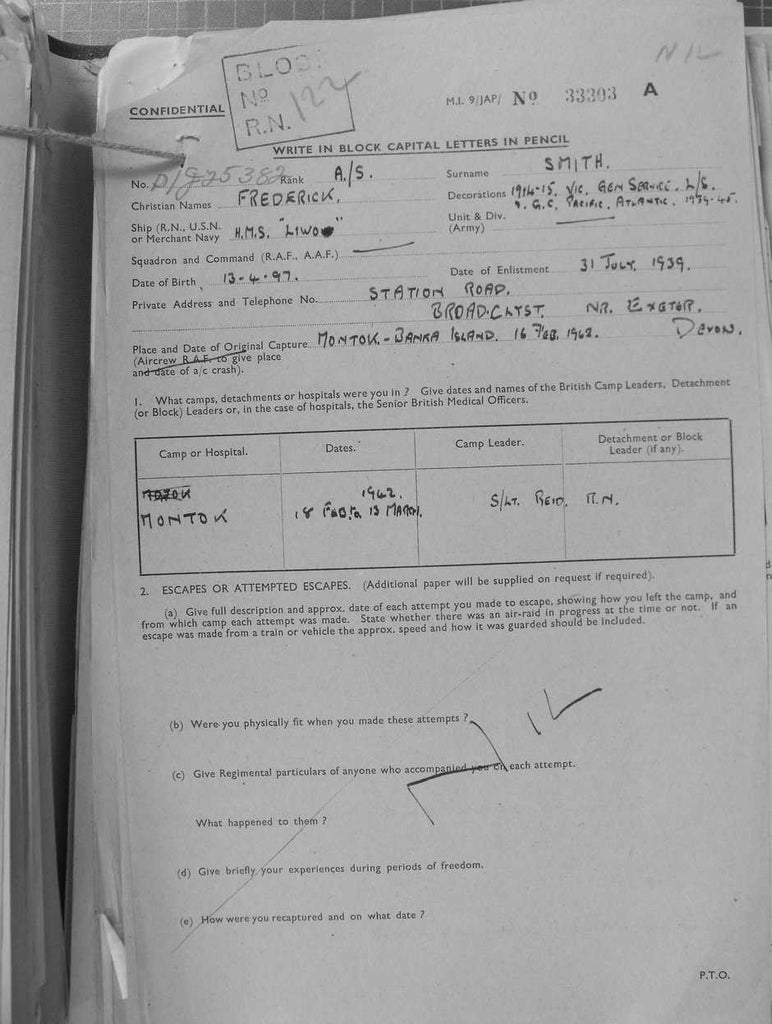 NIL
BLOC.
No 122
R.N.
CONFIDENTIAL
M.I. 9/JAP/ No 33303 A
WRITE IN BLOCK CAPITAL LETTERS IN PENCIL
No. D/J25382 Rank A/S. Surname SMITH.
Christian Names FREDERICK. Decorations 1914-15. VIC. GEN SERVICE. L/S.
G.C. PACIFIC, ATLANTIC. 1939-45.
Ship (R.N., U.S.N. or Merchant Navy H.M.S. "LIWO" Unit & Div. (Army)
Squadron and Command (R.A.F., A.A.F.)
Date of Birth 13-4-97. Date of Enlistment 31 JULY, 1939.
Private Address and Telephone No. STATION ROAD.
BROAD.CLYST. NR. EXETER.
DEVON.
Place and Date of Original Capture MONTOK - BANKA ISLAND. 16 FEB. 1942.
(Aircrew R.A.F. to give place
and date of a/c crash).
1. What camps, detachments or hospitals were you in ? Give dates and names of the British Camp Leaders, Detachment
(or Block) Leaders or, in the case of hospitals, the Senior British Medical Officers.
Camp or Hospital. Dates. Camp Leader. Detachment or Block Leader (if any).
1942.
MONTOK 18 FEB to 13 MARCH. S/LT. REID. R.N.
2. ESCAPES OR ATTEMPTED ESCAPES. (Additional paper will be supplied on request if required).
(a) Give full description and approx. date of each attempt you made to escape, showing how you left the camp, and
from which camp each attempt was made. State whether there was an air-raid in progress at the time or not. If an
escape was made from a train or vehicle the approx. speed and how it was guarded should be included.
(b) Were you physically fit when you made these attempts ?
(c) Give Regimental particulars of anyone who accompanied you on each attempt.
What happened to them ?
(d) Give briefly your experiences during periods of freedom.
(e) How were you recaptured and on what date ?
P.T.O.